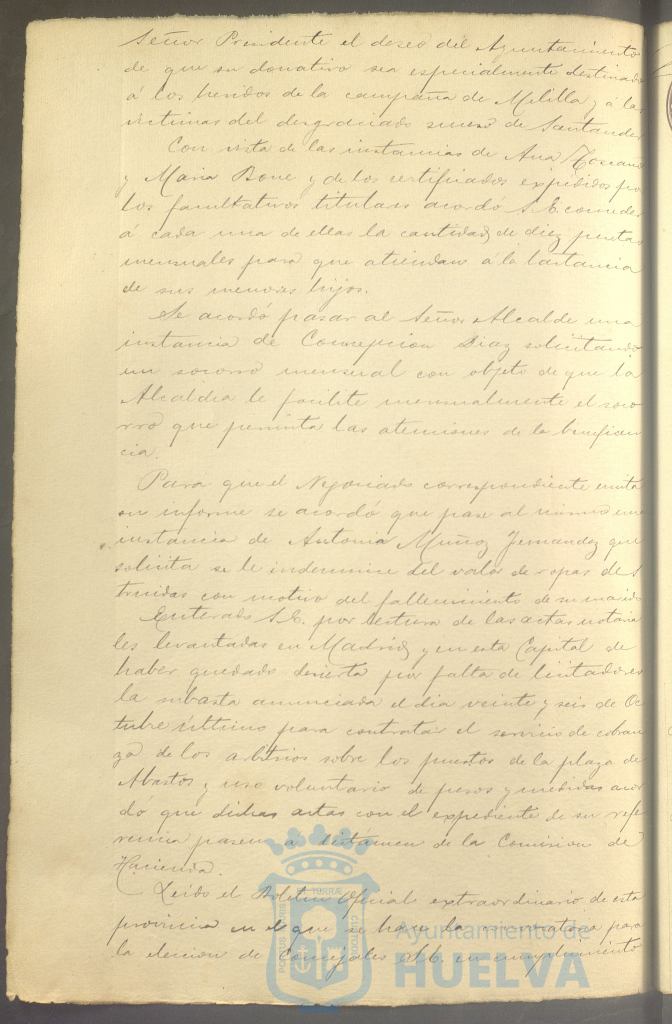 Señor Presidente el deseo del Ayuntamiento
de que su donativo sea especialmente destinado
á los heridos de la campaña de Melilla y á las
victimas del desgraciado suceso de Santander
Con vista de las instancias de Ana Toscano
y Maria Bone y de los certificados expedidos por
los facultativos titulares acordó S.E. conceder
á cada una de ellas la cantidad de diez pesetas
mensuales para que atiendan á la lactancia
de sus menores hijos.
Se acordó pasar al Señor Alcalde una
instancia de Concepcion Diaz solicitando
un socorro mensual con objeto de que la
Alcaldia le facilite mensualmente el soco
rro que permita las atenciones de la beneficen
cia.
Para que el Negociado correspondiente emita
su informe se acordó que pase al mismo una
instancia de Antonia Muñoz Fernandez que
solicita se le indemnice del valor de ropas des
truidas con motivo del fallecimiento de su marido
Enterado S.E. por lectura de las actas notaria
les levantadas en Madrid y en esta Capital de
haber quedado desierta por falta de licitadores
la subasta anunciada el dia veinte y seis de Oc
tubre último para contratar el servicio de cobran
za de los arbitrios sobre los puestos de la plaza de
Abastos y uso voluntario de pesos y medidas acor
dó que dichas actas con el expediente de su refe
rencia pasen a dictamen de la Comision de
Hacienda.
Leido el Boletin Oficial extraordinario de esta
provincia en el que se hace la convocatoria para
la eleccion de Concejales S.E. en cumplimiento
Ayuntamiento de
HUELVA
PORTUS MARIS
ET TERRÆ
CUSTODIA